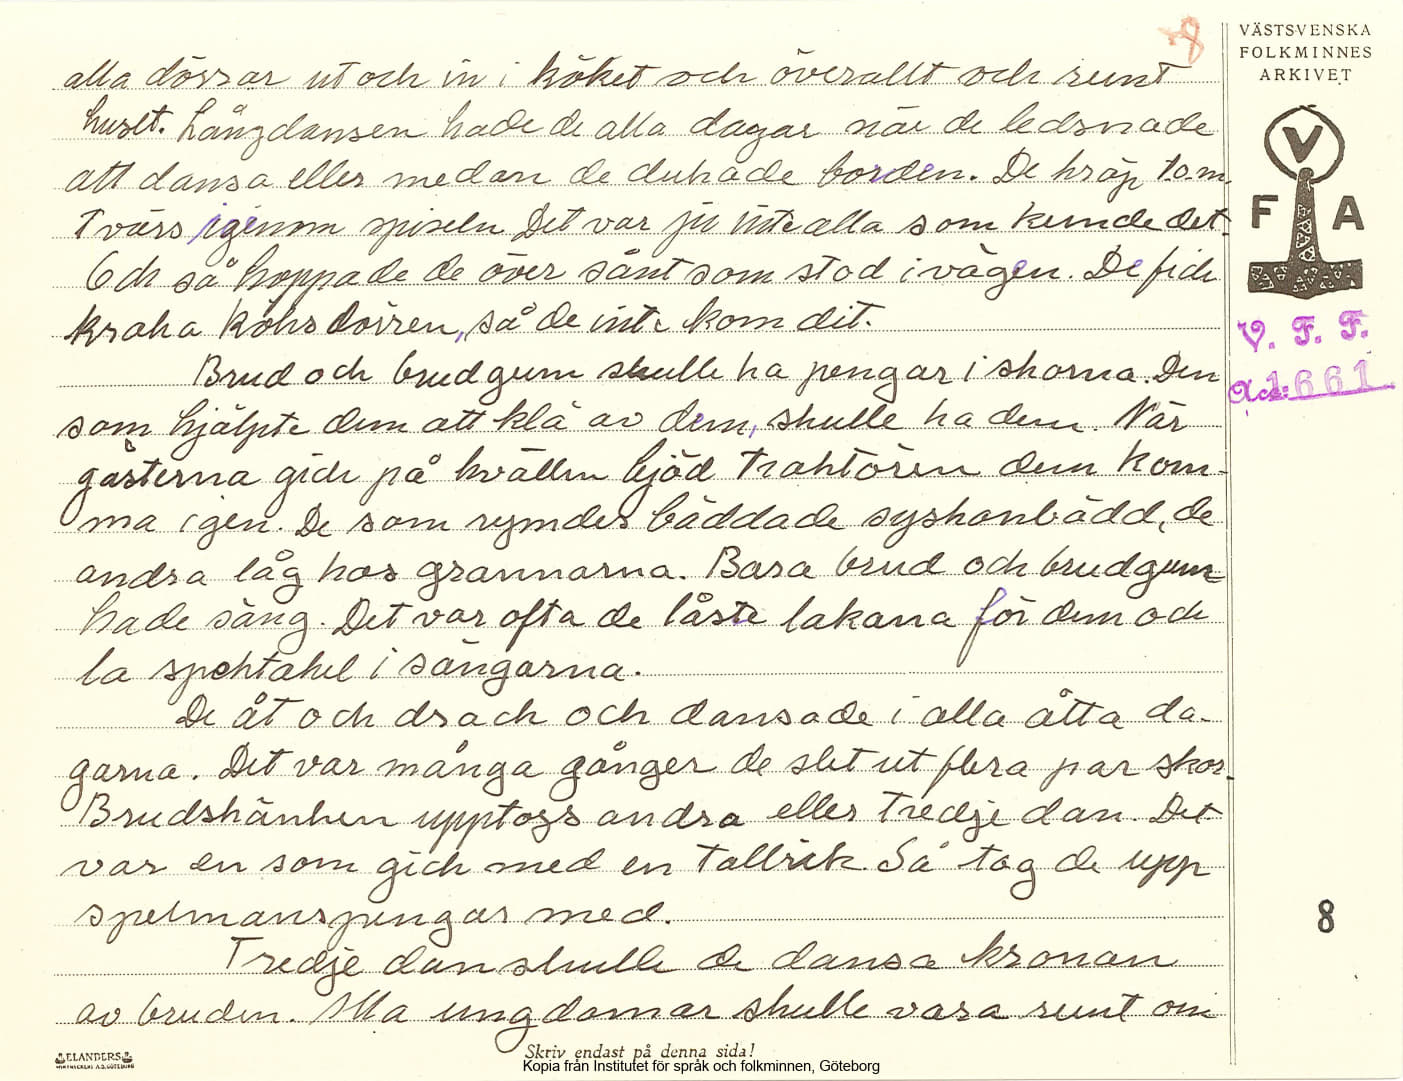 8
VÄSTSVENSKA
FOLKMINNES
ARKIVET
V
F A
V. F. F.
Acc: 1661
alla dörrar ut och in i köket och överallt och runt
huset. Långdansen hade de alla dagar när de ledsnade
att dansa eller medan de dukade borden. De kröp t.o.m.
tvärs igenom spiseln. Det var ju inte alla som kunde det.
Och så hoppade de över sånt som stod i vägen. De fick
kraka köksdörren, så de inte kom dit.
Brud och brudgum skulle ha pengar i skorna. Den
som hjälpte dem att klä av dem, skulle ha dem. När
gästerna gick på kvällen bjöd traktören dem kom-
ma igen. De som rymdes bäddade syskonbädd, de
andra låg hos grannarna. Bara brud och brudgum
hade säng. Det var ofta de låste lakana för dem och
la spektakel i sängarna.
De åt och drack och dansade i alla åtta da-
garna. Det var många gånger de slet ut flera par skor.
Brudskänken upptogs andra eller tredje dan. Det
var en som gick med en tallrik. Så tog de upp
spelmanspengar med.
Tredje dan skulle de dansa kronan
av bruden. Alla ungdomar skulle vara runt om
8
ELANDERS
Skriv endast på denna sida!
Kopia från Institutet för språk och folkminnen, Göteborg